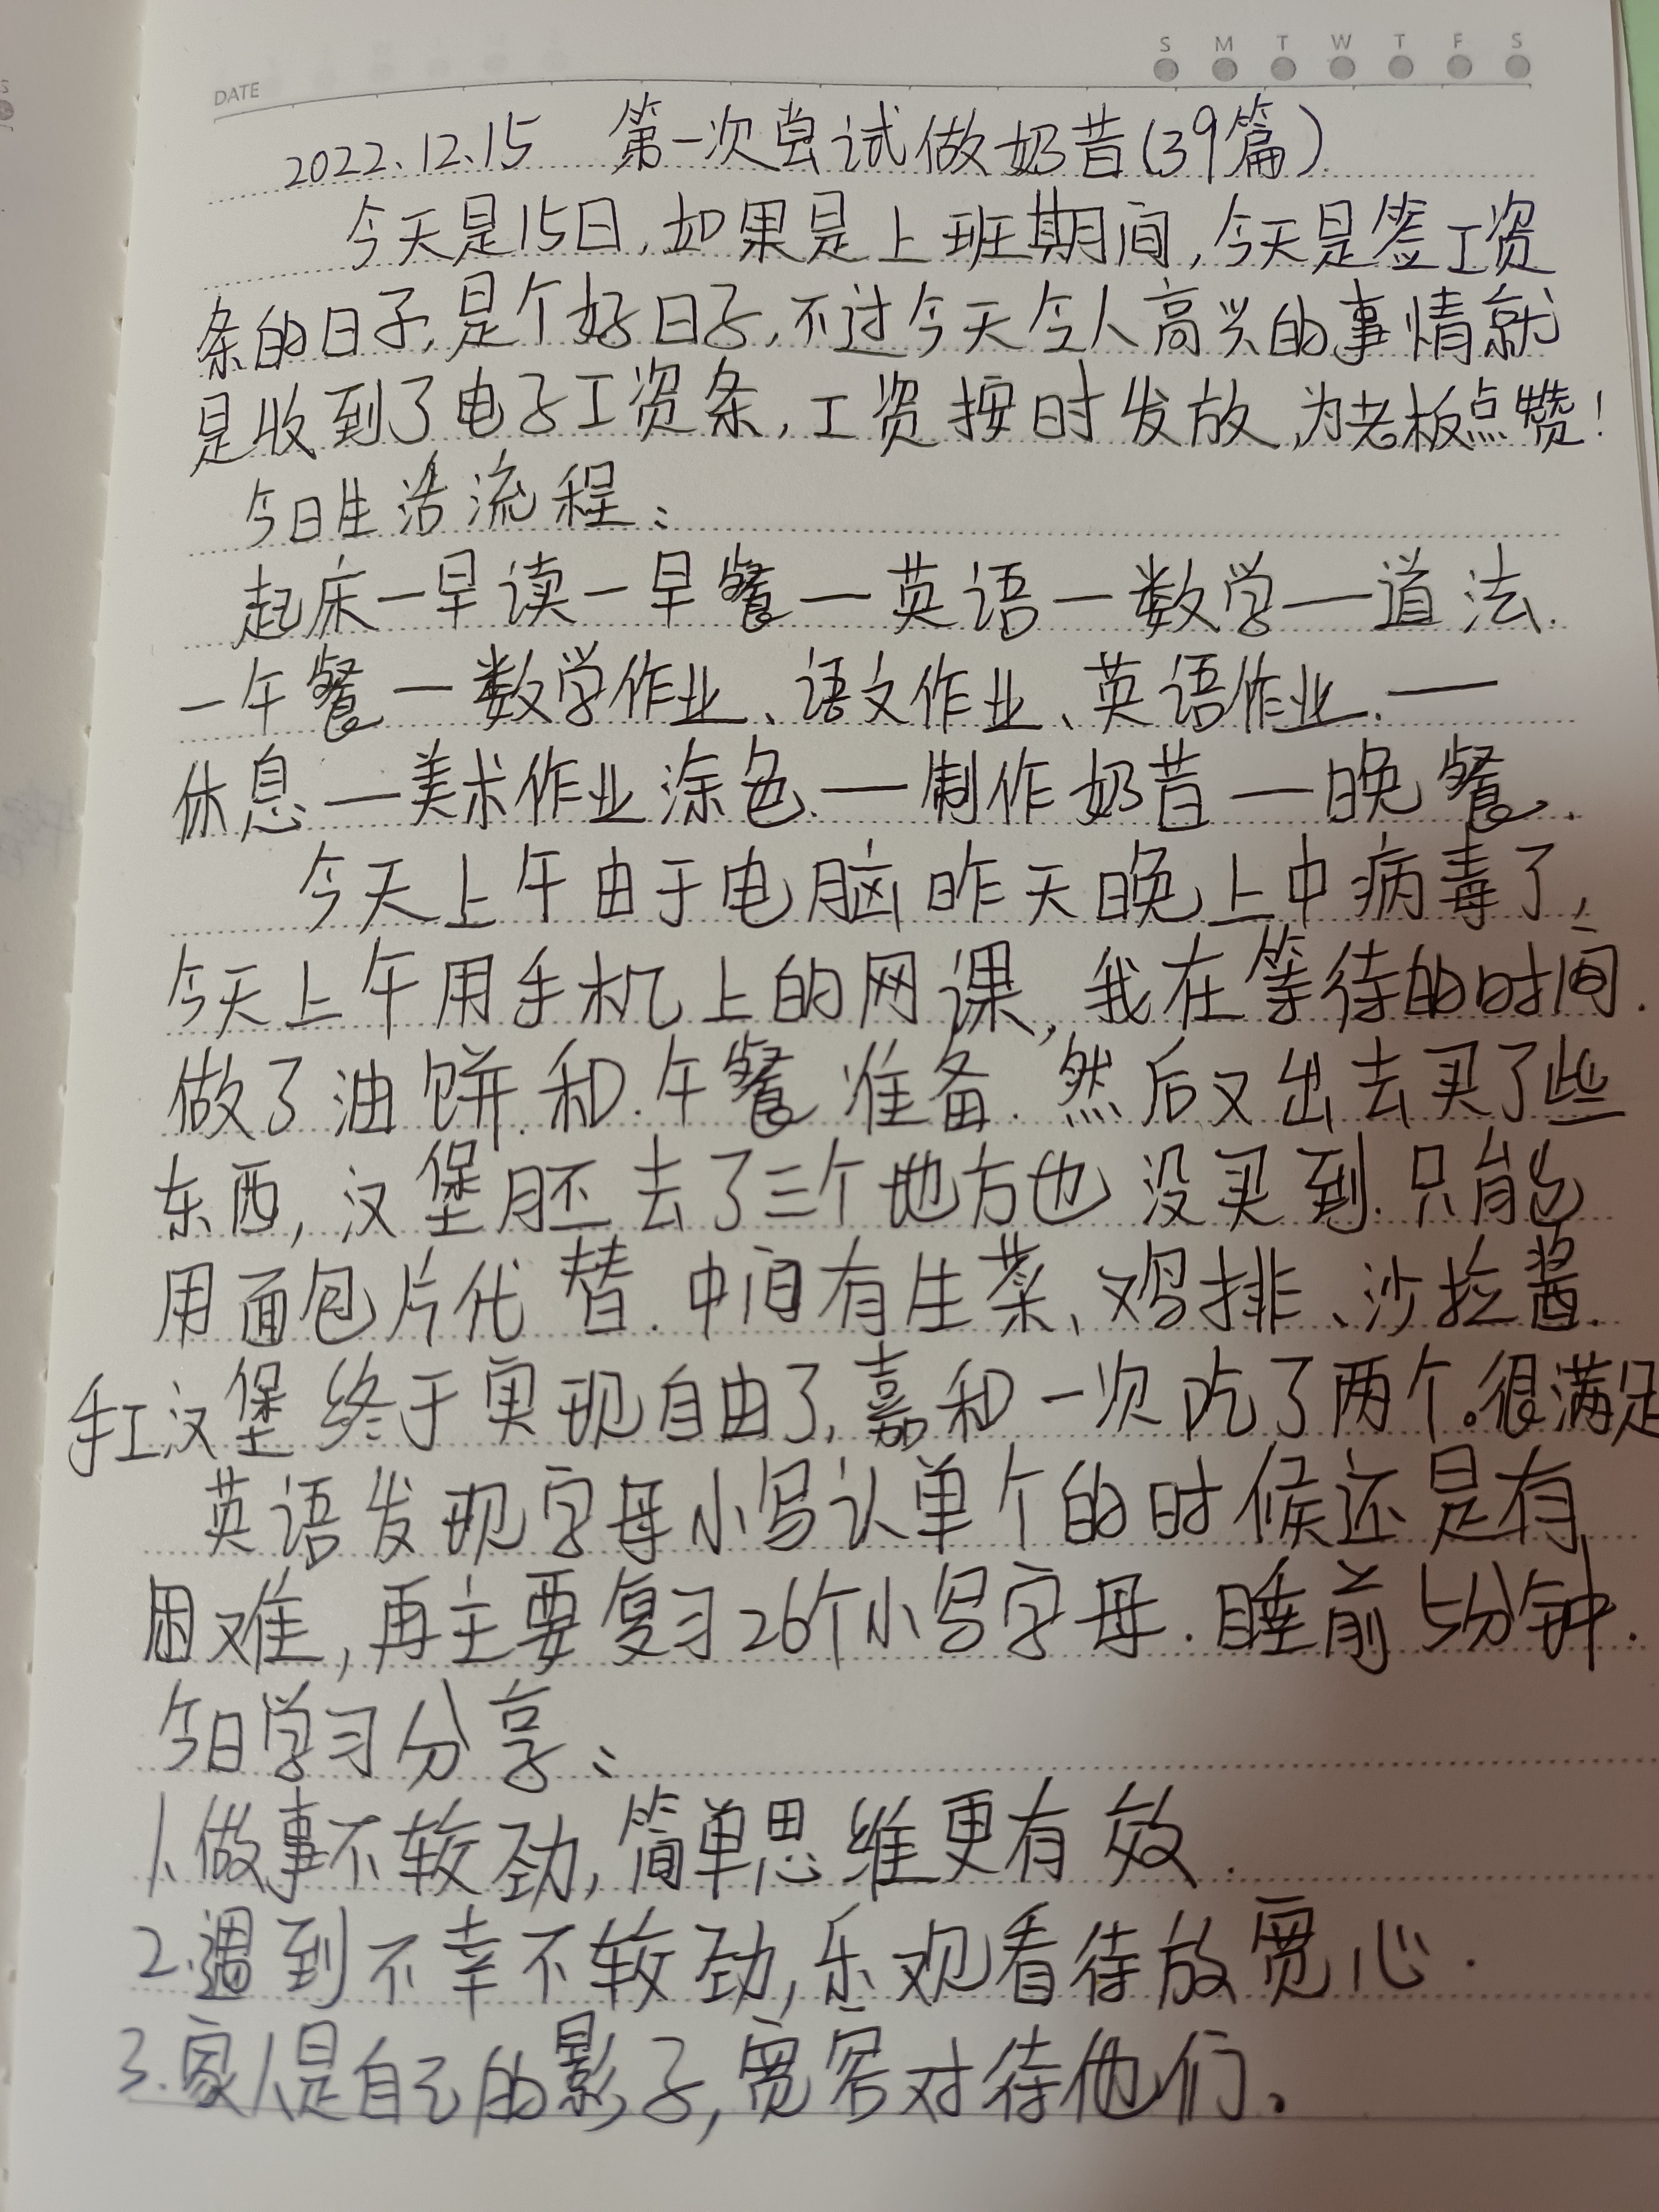 S M T W T F S
DATE
2022.12.15 第一次尝试做奶昔(39篇)
今天是15日,如果是上班期间,今天是签工资
条的日子,是个好日子,不过今天令人高兴的事情就
是收到了电子工资条,工资按时发放,为老板点赞!
今日生活流程:
起床一早读一早餐一英语一数学一道法.
一午餐一数学作业、语文作业、英语作业.一
休息一美术作业涂色.一制作奶昔一晚餐.
今天上午由于电脑昨天晚上中病毒了,
今天上午用手机上的网课,我在等待的时间.
做了油饼.和.午餐准备.然后又出去买了些
东西,汉堡胚去了三个地方也没买到.只能
用面包片代替.中间有生菜、鸡排、沙拉酱.
手工汉堡终于实现自由了,嘉和一次吃了两个。很满足
英语发现字母小写认单个的时候还是有
困难,再主要复习26个小写字母.睡前5分钟.
今日学习分享:
1.做事不较劲,简单思维更有效.
2.遇到不幸不较劲,乐观看待放宽心.
3.家人是自己的影子,宽容对待他们。